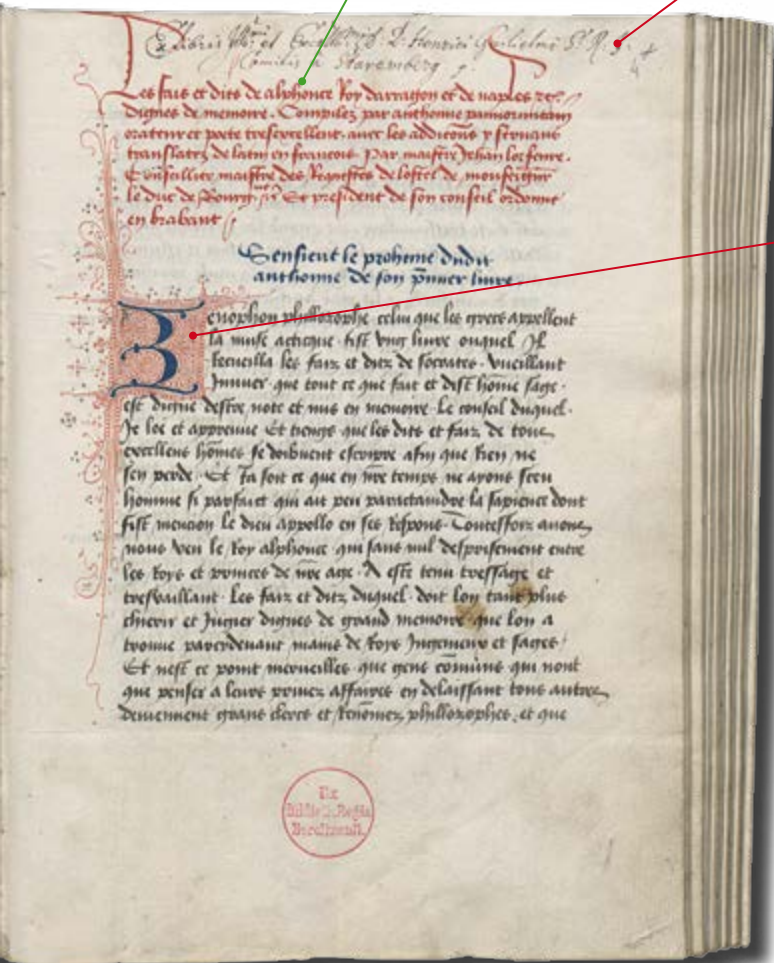 Ex Libris Ill.mi et Excell.mi D. D. Henrici Guilielmi S. R. J.
Comitis a Staremberg
Les fais et dits de alphonce Roy darragon et de naples etc.
dignes de memoire. Compilez par anthoine panormitam
orateur et poete tresexcellent. auec les addicōns y seruans
translatez de latin en francois. Par maistre Jehan lorfeure.
Conseillier maistre des Requestes de lostel de monseigneur
le duc de Bourgne Et president de son conseil ordonne
en brabant
Sensieut le proheme dudit
anthoine de son p̄mier liure.
Zenophon phillozophe celui que les grecz appellent
la muse acticque. fist vng liure ouquel Il
recueilla les faiz et ditz de socrates. vueillant
Jnnuer que tout ce que fait et dist hōme sage.
est digne destre note et mis en memoire. Le conseil duquel.
Je loe et appreuue Et tiengs que les dits et faiz de tous
excellens hōmes se doibuent escripre afin que Rien ne
sen perde. Et Ja soit ce que en nr̄e temps ne ayons sceu
homme si parfaict qui ait peu paractaindre la sapience dont
fist mencion le dieu appollo en ses Respons. Touteffoiz auons
nous veu le Roy alphonce. qui sans nul desprisement entre
les Roys et princes de nr̄e age. A este tenu tressage et
tresvaillant. Les faiz et ditz duquel. doit lon tant plus
chierir et Jugier dignes de grand memoire. que lon a
trouue parcidenant mains de Roys Ingenieux et sages.
Et nest ce point merueilles. que gens com̄uns qui nont
que penser a leurs priuez affaires en delaissant tous autres
deuiennent grans clercs et Renōmez phillozophes. et que
Ex
Biblioth. Regia
Berolinensi.